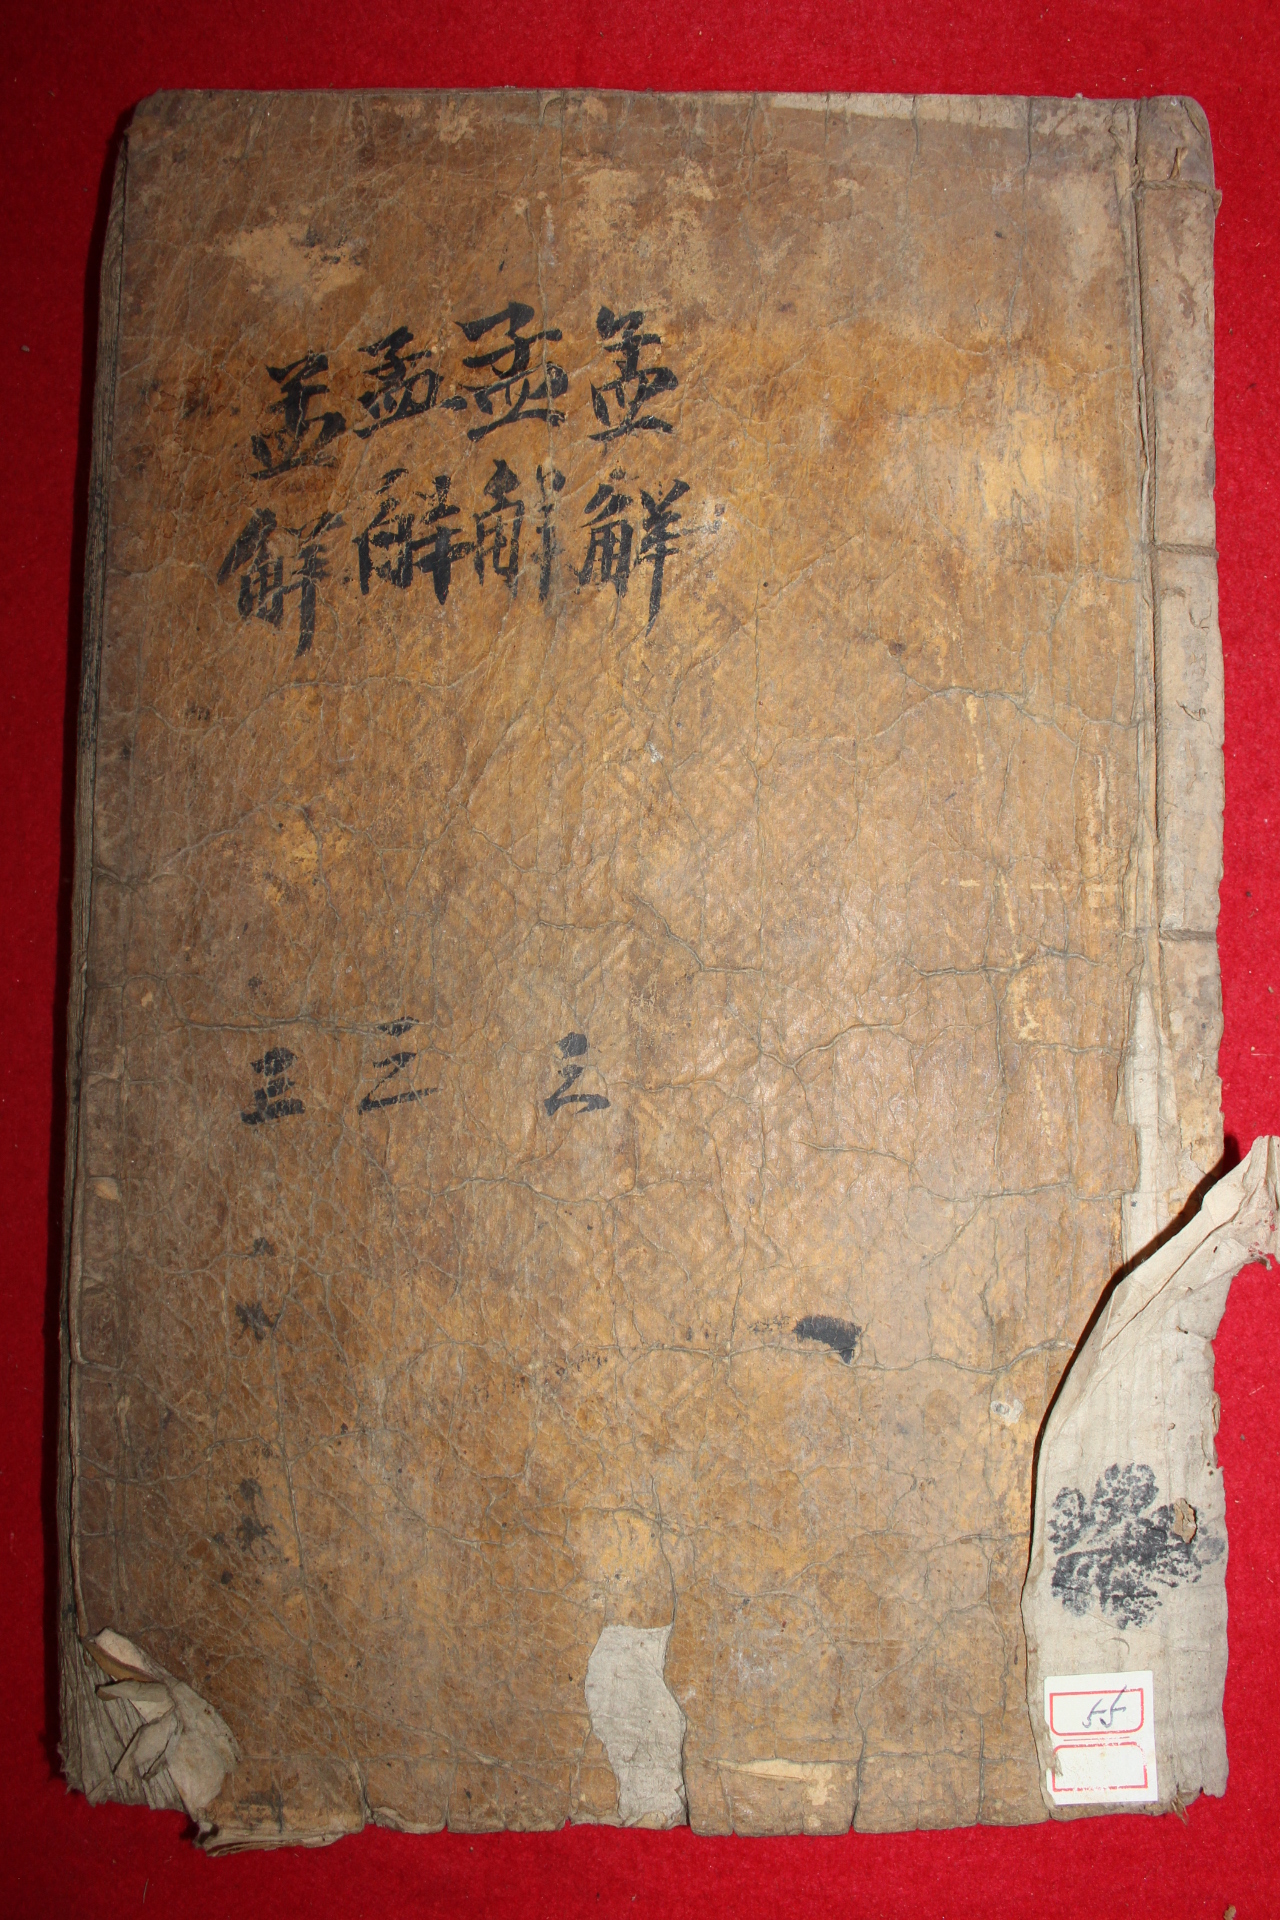 孟解
孟解 三
孟解 三
孟解 三
55